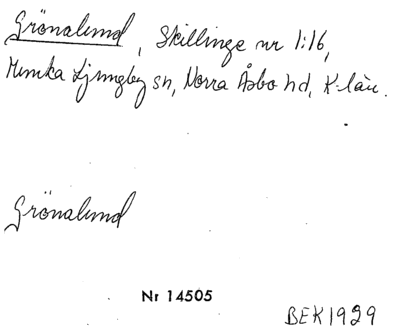 Grönalund, Skillinge nr 1:16,
Munka Ljungby sn, Norra Åsbo hd, K-län.
Grönalund
Nr 14505
BEK 1929